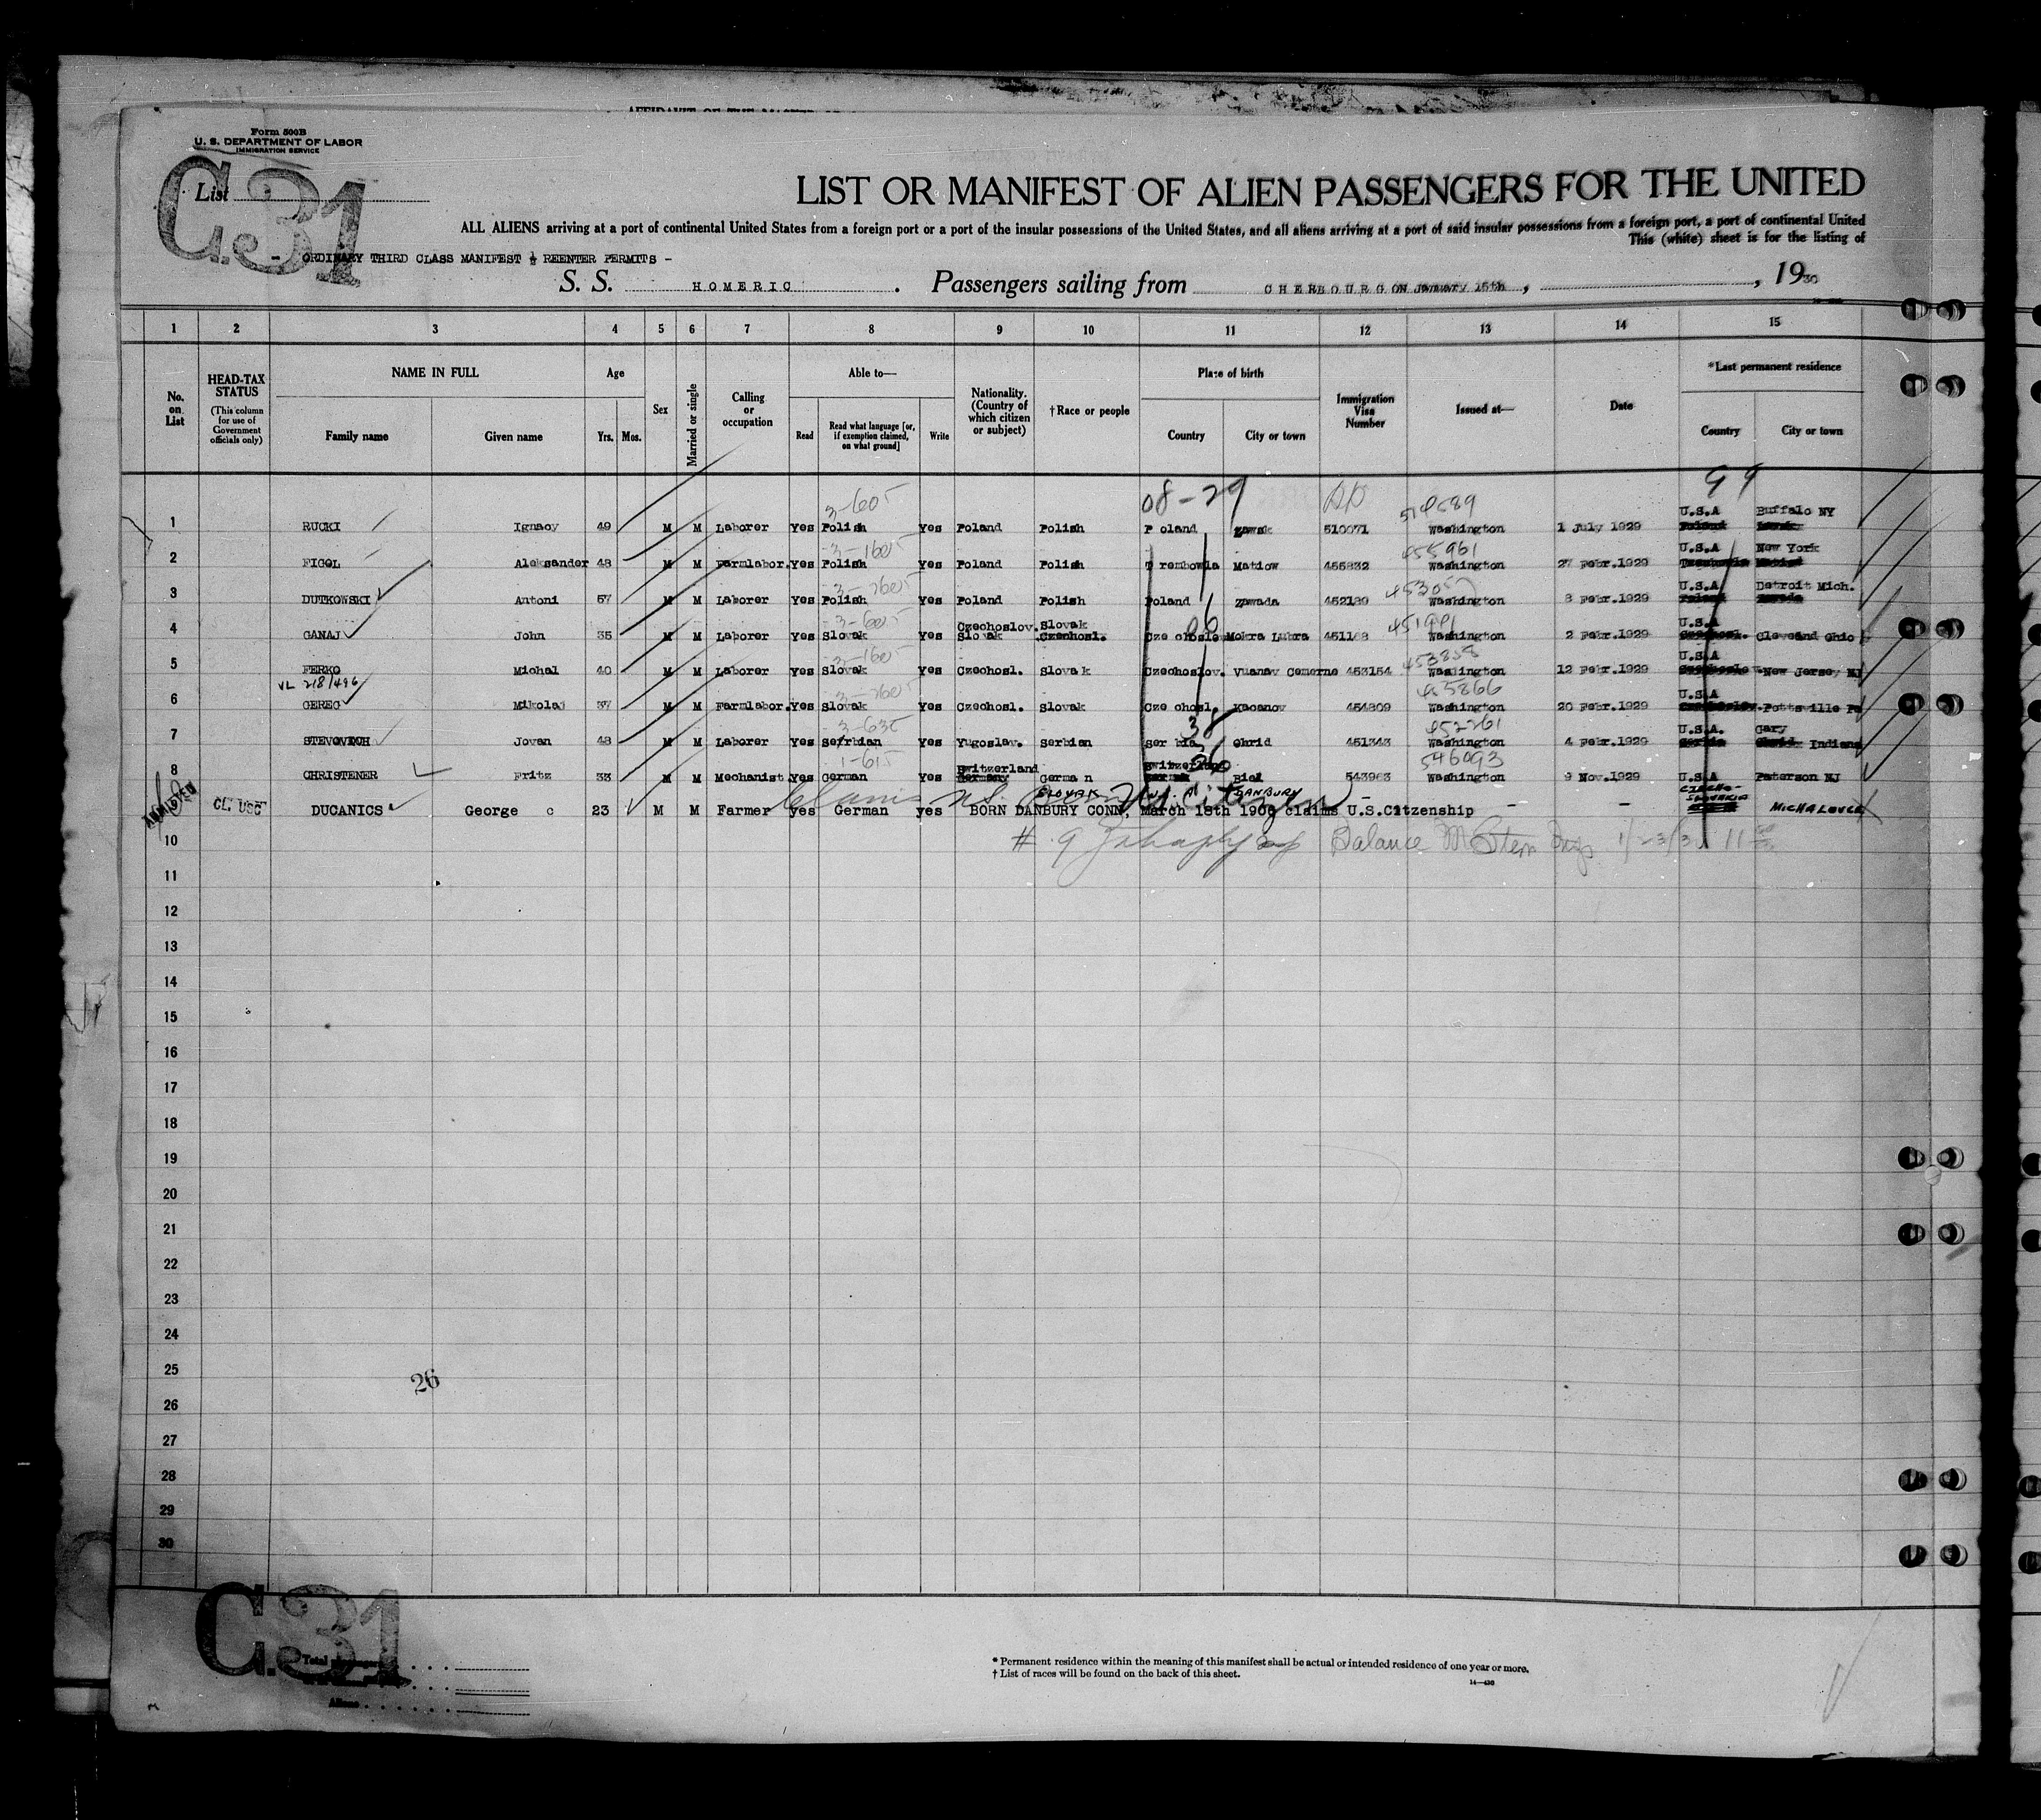 Form 500B
U. S. DEPARTMENT OF LABOR
IMMIGRATION SERVICE
C.31
List
LIST OR MANIFEST OF ALIEN PASSENGERS FOR THE UNITED
ALL ALIENS arriving at a port of continental United States from a foreign port or a port of the insular possessions of the United States, and all aliens arriving at a port of said insular possessions from a foreign port, a port of continental United
This (white) sheet is for the listing of
- ORDINARY THIRD CLASS MANIFEST ½ REENTER PERMITS -
S. S. HOMERIC. Passengers sailing from CHERBOURG ON January 15th, , 1930
1 2 3 4 5 6 7 8 9 10 11 12 13 14 15
No. on List
HEAD-TAX STATUS (This column for use of Government officials only)
NAME IN FULL Family name Given name
Age Yrs. Mos.
Sex
Married or single
Calling or occupation
Able to— Read Read what language [or, if exemption claimed, on what ground] Write
Nationality. (Country of which citizen or subject)
†Race or people
Place of birth Country City or town
Immigration Visa Number
Issued at—
Date
*Last permanent residence Country City or town
08-29 99
3-605 514589
1 RUCKI Ignacy 49 M M Laborer Yes Polish Yes Poland Polish Poland 510071 Washington 1 July 1929 U.S.A Buffalo NY
3-1605 455961
2 FIGOL Aleksander 48 M M Farmlabor. Yes Polish Yes Poland Polish Trembowla Matiow 455832 Washington 27 Febr.1929 U.S.A New York
3-2605
3 DUTKOWSKI Antoni 57 M M Laborer Yes Polish Yes Poland Polish Poland Zawada 452189 Washington 8 Febr.1929 U.S.A Detroit Mich.
3-605 451991
4 GANAJ John 35 M M Laborer Yes Slovak Yes Czechoslov. Slovak Slovak Czechosl. Czechoslov Mokra Lubra 451168 Washington 2 Febr.1929 U.S.A Czechosl. Cleveand Ohio
3-1605 453858
5 FERKO Michal 40 M M Laborer Yes Slovak Yes Czechosl. Slovak Czechoslov. Vuanav Cemerne 453154 Washington 12 Febr.1929 U.S.A New Jersey NJ
VL 218/496 3-2605 455866
6 GEREG Mikolaj 37 M M Farmlabor. Yes Slovak Yes Czechosl. Slovak Czechosl. Kacanov 454809 Washington 20 Febr.1929 U.S.A Pottsville Pa
3-635 38 452261
7 STEVOVICH Jovan 48 M M Laborer Yes Serbian Yes Yugoslav. Serbian Serbia Ohrid 451343 Washington 4 Febr.1929 U.S.A. Gary Indiana
1-615 546093
8 CHRISTENER Fritz 33 M M Mechanist. Yes German Yes Switzerland Germany German Switzerland Biel 543963 Washington 9 Nov.1929 U.S.A Paterson NJ
SLOVAK U.S.A. DANBURY CZECHO-SLOVAKIA
CL. USC DUCANICS George c 23 M M Farmer yes German yes BORN DANBURY CONN, March 18th 1906 claims U.S.Citzenship - - MICHALOVCE
10
11
12
13
14
15
16
17
18
19
20
21
22
23
24
25
26
26
27
28
29
30
C.31
Total passengers
Aliens
* Permanent residence within the meaning of this manifest shall be actual or intended residence of one year or more.
† List of races will be found on the back of this sheet.
14—430